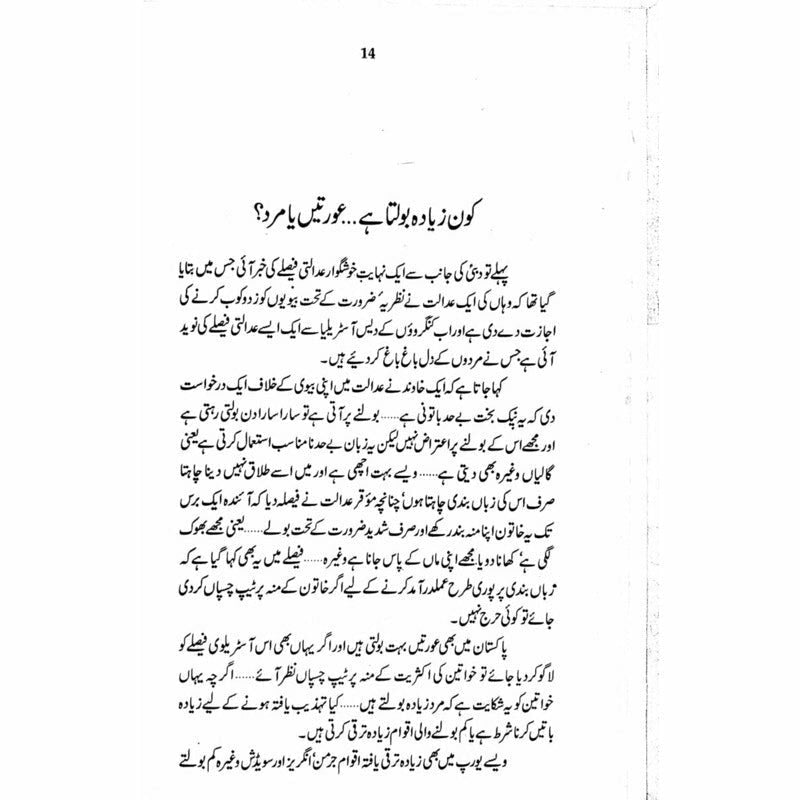 14
کون زیادہ بولتا ہے...عورتیں یا مرد؟
پہلے تو دبئی کی جانب سے ایک نہایت خوشگوار عدالتی فیصلے کی خبر آئی جس میں بتایا
گیا تھا کہ وہاں کی ایک عدالت نے نظریۂ ضرورت کے تحت بیویوں کو زدوکوب کرنے کی
اجازت دے دی ہے اور اب کنگروؤں کے دیس آسٹریلیا سے ایک ایسے عدالتی فیصلے کی نوید
آئی ہے جس نے مردوں کے دل باغ باغ کر دیئے ہیں۔
کہا جاتا ہے کہ ایک خاوند نے عدالت میں اپنی بیوی کے خلاف ایک درخواست
دی کہ یہ نیک بخت بے حد باتونی ہے......بولنے پر آتی ہے تو سارا سارا دن بولتی رہتی ہے
اور مجھے اس کے بولنے پر اعتراض نہیں لیکن یہ زبان بے حد نامناسب استعمال کرتی ہے یعنی
گالیاں وغیرہ بھی دیتی ہے......ویسے بہت اچھی ہے اور میں اسے طلاق نہیں دینا چاہتا
صرف اس کی زباں بندی چاہتا ہوں‘ چنانچہ مؤقر عدالت نے فیصلہ دیا کہ آئندہ ایک برس
تک یہ خاتون اپنا منہ بند رکھے اور صرف شدید ضرورت کے تحت بولے......یعنی مجھے بھوک
لگی ہے‘ کھانا دو یا مجھے اپنی ماں کے پاس جانا ہے وغیرہ......فیصلے میں یہ بھی کہا گیا ہے کہ
زباں بندی پر پوری طرح عملدرآمد کرنے کے لیے اگر خاتون کے منہ پر ٹیپ چسپاں کر دی
جائے تو کوئی حرج نہیں۔
پاکستان میں بھی عورتیں بہت بولتی ہیں اور اگر یہاں بھی اس آسٹریلوی فیصلے کو
لاگو کر دیا جائے تو خواتین کی اکثریت کے منہ پر ٹیپ چسپاں نظر آئے......اگرچہ یہاں
خواتین کو یہ شکایت ہے کہ مرد زیادہ بولتے ہیں......کیا تہذیب یافتہ ہونے کے لیے زیادہ
باتیں کرنا شرط ہے یا کم بولنے والی اقوام زیادہ ترقی کرتی ہیں۔
ویسے یورپ میں بھی زیادہ ترقی یافتہ اقوام جرمن‘ انگریز اور سویڈش وغیرہ کم بولتے